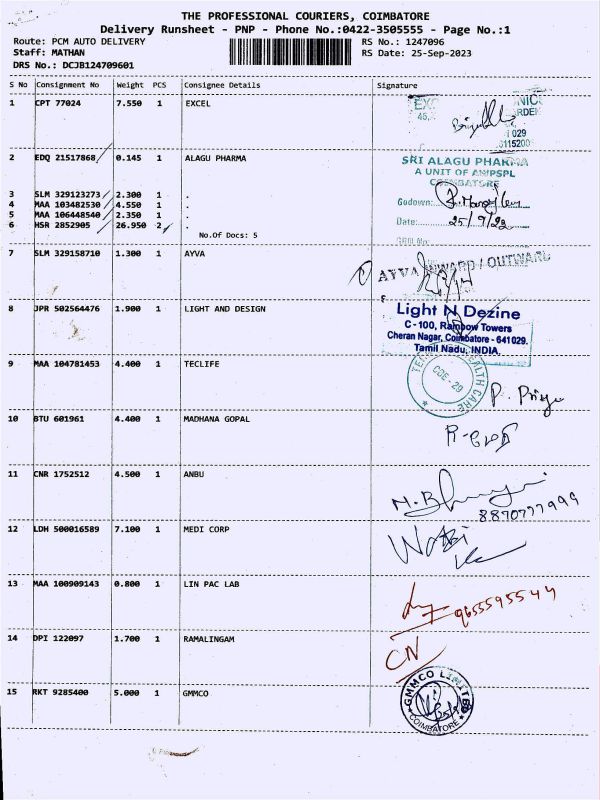 THE PROFESSIONAL COURIERS, COIMBATORE
Delivery Runsheet - PNP - Phone No.:0422-3505555 - Page No.:1
Route: PCM AUTO DELIVERY RS No.: 1247096
Staff: MATHAN RS Date: 25-Sep-2023
DRS No.: DCJB124709601
S No Consignment No Weight PCS Consignee Details Signature
1 CPT 77024 7.550 1 EXCEL
EX NIC
45, RDEN
029
115200
2 EDQ 21517868 0.145 1 ALAGU PHARMA
SRI ALAGU PHARMA
A UNIT OF AMPSPL
COIMBATORE
3 SLM 329123273 2.300 1 .
4 MAA 103482530 4.550 1 . Godown:
5 MAA 106448540 2.350 1 .
6 HSR 2852905 26.950 2 . Date: 25/9/23
No.Of Docs: 5
7 SLM 329158710 1.300 1 AYVA
AYVA INWARD / OUTWARD
8 JPR 502564476 1.900 1 LIGHT AND DESIGN
Light N Dezine
C-100, Rainbow Towers
Cheran Nagar, Coimbatore - 641029.
Tamil Nadu, INDIA.
9 MAA 104781453 4.400 1 TECLIFE
HEALTH CARE
COE - 29
P. Priya
10 BTU 601961 4.400 1 MADHANA GOPAL
11 CNR 1752512 4.500 1 ANBU
8870777999
12 LDH 500016589 7.100 1 MEDI CORP
13 MAA 100909143 0.800 1 LIN PAC LAB
9655595544
14 DPI 122097 1.700 1 RAMALINGAM
CN
15 RKT 9285400 5.000 1 GMMCO
GMMCO LIMITED
COIMBATORE